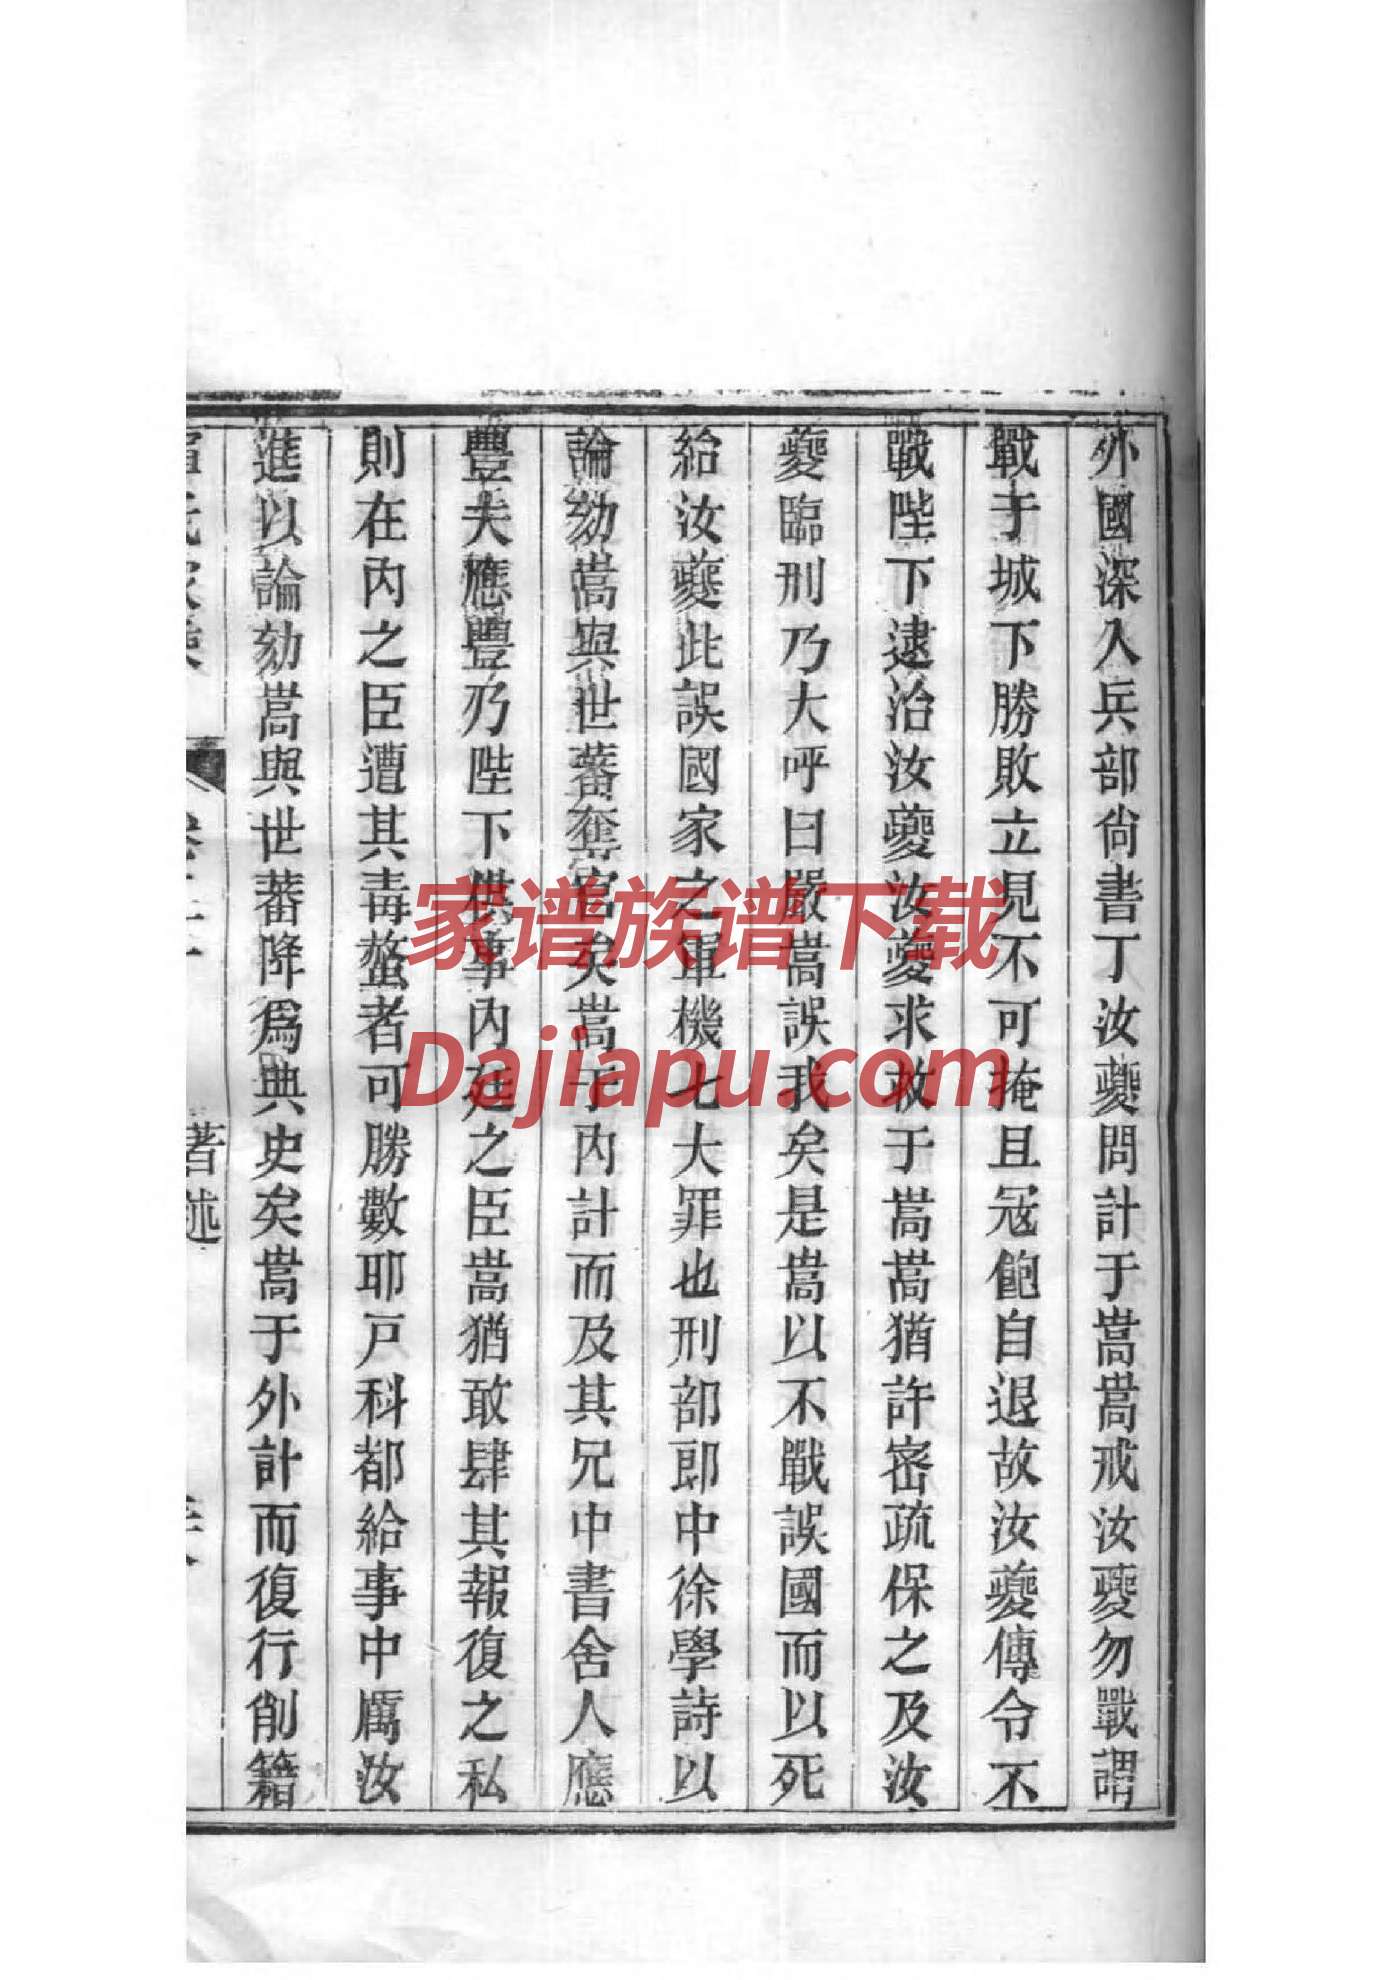 外國深入兵部尙書丁汝夔問計于嵩嵩戒汝夔勿戰謂
戰于城下勝敗立見不可掩且冦飽自退故汝夔傳令不
戰陛下逮治汝夔汝夔求救于嵩嵩猶許密疏保之及汝
夔臨刑乃大呼曰嚴嵩誤我矣是嵩以不戰誤國而以死
給汝夔此誤國家之軍機七大罪也刑部郎中徐學詩以
論劾嵩與世蕃奪官矣嵩于內計而及其兄中書舍人應
豐夫應豐乃陛下供事內廷之臣嵩猶敢肆其報復之私
則在內之臣遭其毒螫者可勝數耶戸科都給事中厲汝
進以論劾嵩與世蕃降爲典史矣嵩于外計而復行削籍
著述
家谱族谱下载
Dajiapu.com